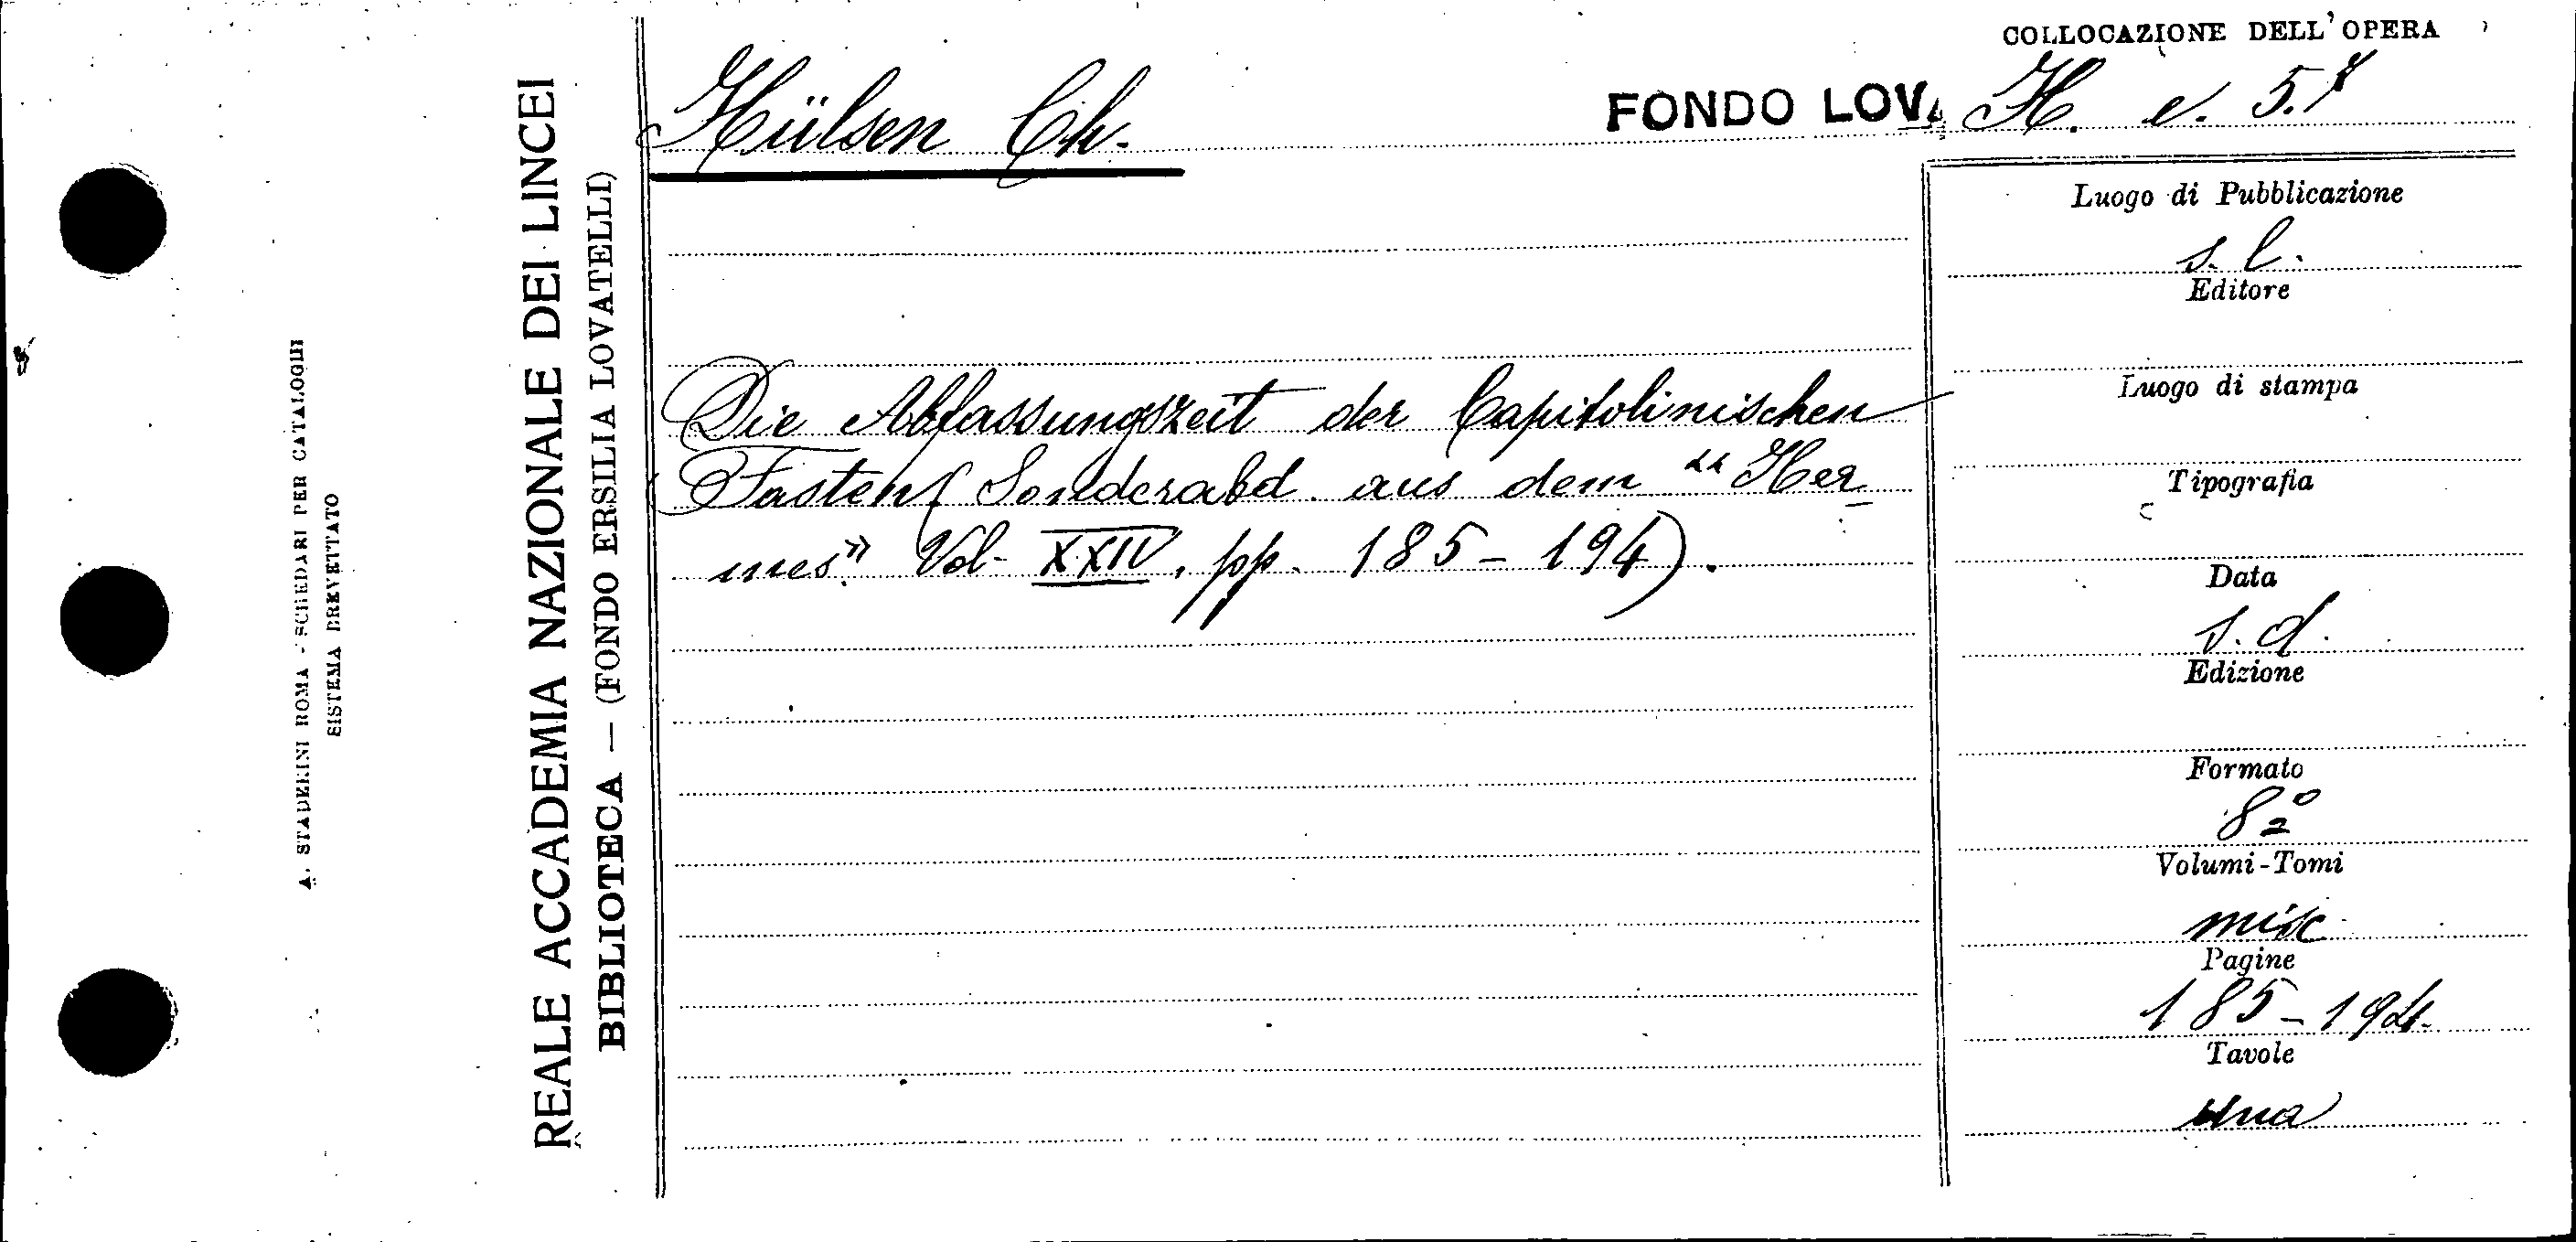 COLLOCAZIONE DELL'OPERA
Hülsen Ch.
FONDO LOVA H. e. 5.7
REALE ACCADEMIA NAZIONALE DEI LINCEI
BIBLIOTECA — (FONDO ERSILIA LOVATELLI)
A. STADERINI ROMA - SCHEDARI PER CATALOGHI
SISTEMA BREVETTATO
Die Abfassungszeit der Capitolinischen
Fasten (Sonderabd. aus dem "Her
mes" Vol. XXIV, pp. 185-194).
Luogo di Pubblicazione
s. l.
Editore
Luogo di stampa
Tipografia
Data
s. d.
Edizione
Formato
8º
Volumi-Tomi
misc
Pagine
185-194
Tavole
una